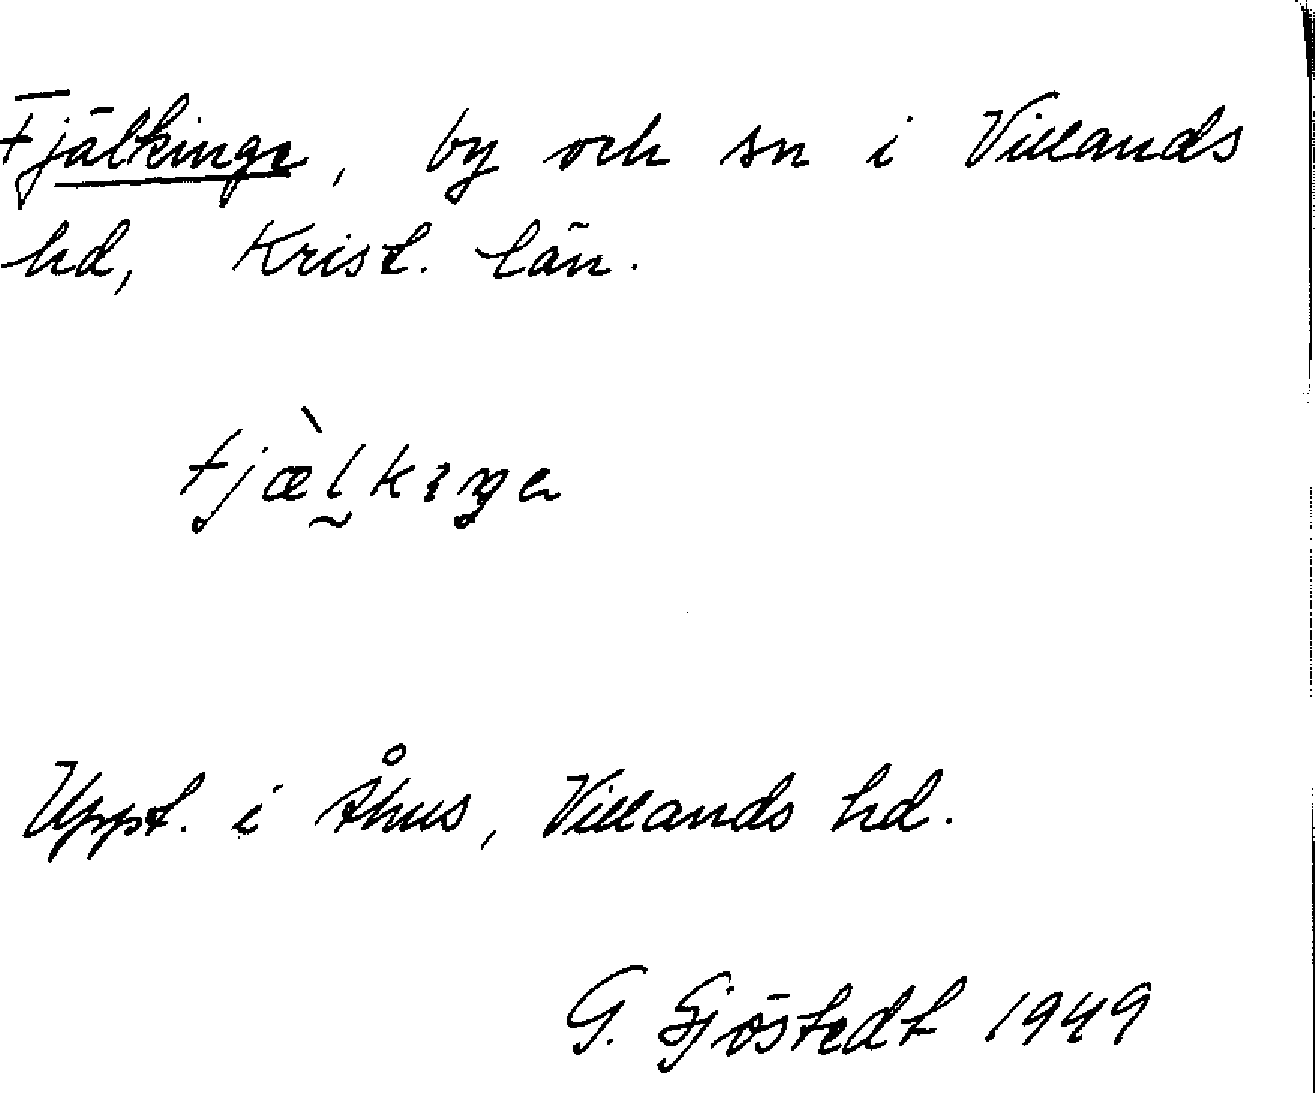 Fjälkinge, by och sn i Villands
hd, Krist. län.
fjæ̀l̰kıŋə
Uppt. i Åhus, Villands hd.
G. Sjöstedt 1949